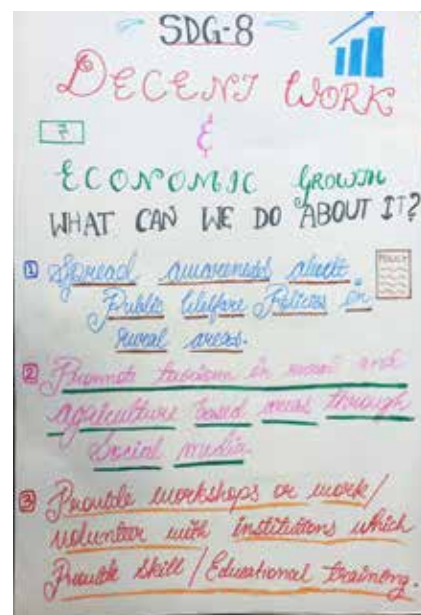 SDG-8
DECENT WORK
&
ECONOMIC GROWTH
WHAT CAN WE DO ABOUT IT?
1 Spread awareness about
POLICY
Public Welfare Policies in
rural areas.
2 Promote tourism in rural and
agriculture based areas through
Social media.
3 Provide workshops or work/
volunteer with institutions which
Provide skill/Educational training.